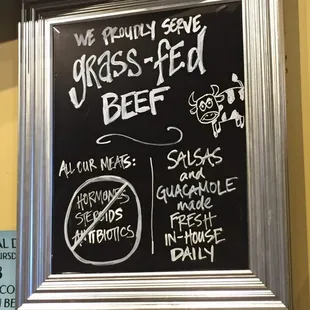 WE PROUDLY SERVE
grass-fed
BEEF
ALL OUR MEATS:
HORMONES
STEROIDS
ANTIBIOTICS
SALSAS
and
GUACAMOLE
made
FRESH
IN-HOUSE
DAILY